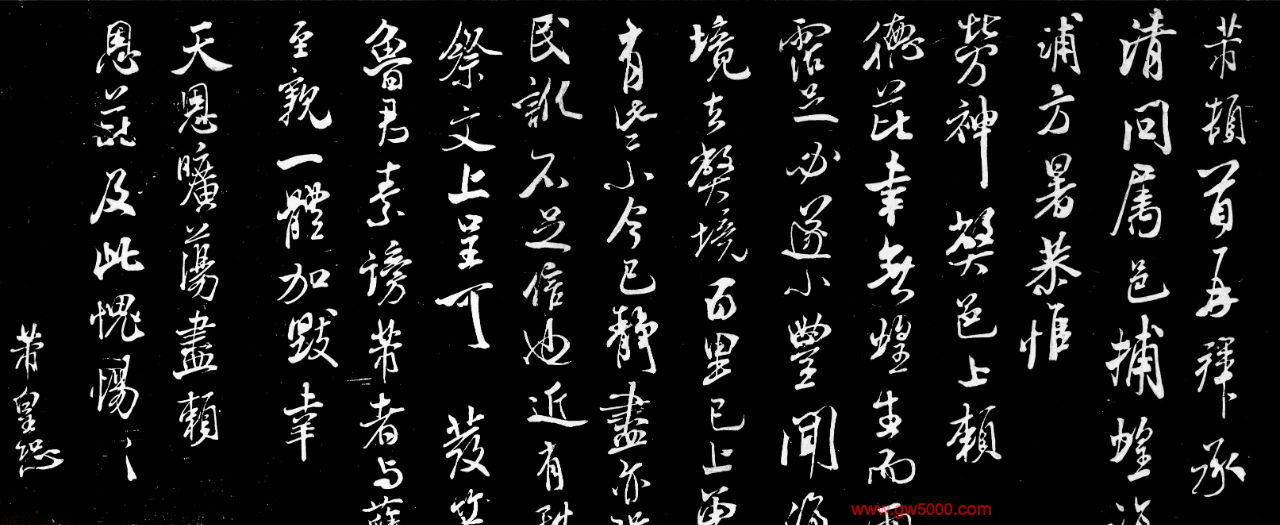 芾頓首再拜承
清问屬邑捕蝗
浦方暑恭惟
勞神 弊邑上賴
德芘幸無蝗生而雨
霑足必遂小豐聞
境去弊境百里已上
有些小今已靜盡亦
民訛不足信也近有
祭文上呈可 發笑
魯君素謗芾者与薛
至親一體加毀幸
天恩曠蕩盡賴
恩芘及此愧惕〻
芾皇恐
www.gw5000.com